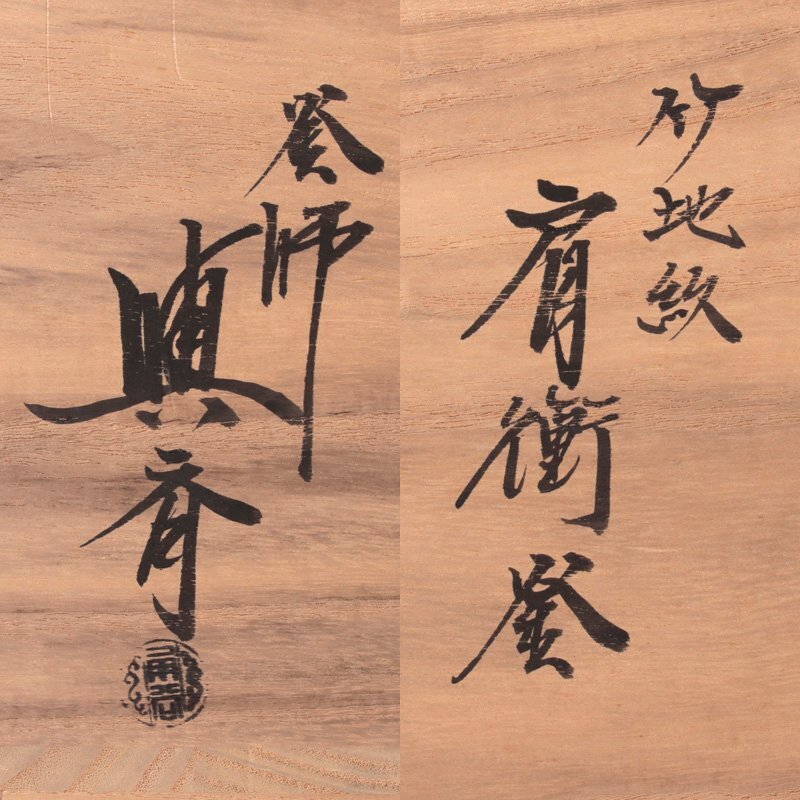 竹地紋
肩衝釜
釜師
興斎